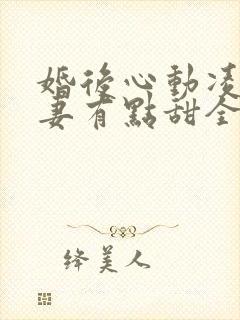 婚後心動凌
妻有點甜全
絳美人